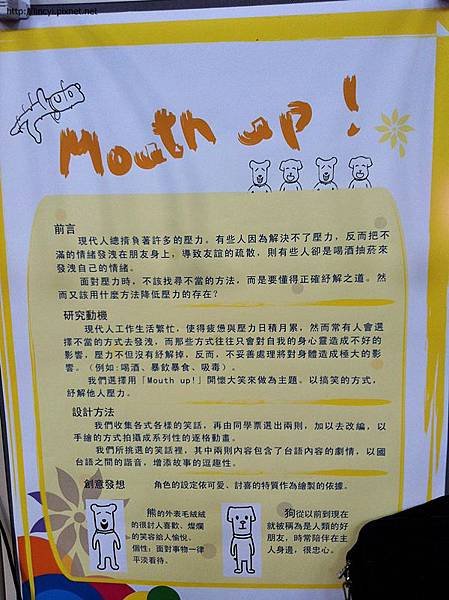 http://lincyi.pixnet.net
Mouth up!
前言
現代人總揹負著許多的壓力。有些人因為解決不了壓力，反而把不
滿的情緒發洩在朋友身上，導致友誼的疏散，則有些人卻是喝酒抽菸來
發洩自己的情緒。
面對壓力時，不該找尋不當的方法，而是要懂得正確紓解之道。然
而又該用什麼方法降低壓力的存在？
研究動機
現代人工作生活繁忙，使得疲憊與壓力日積月累，然而常有人會選
擇不當的方式去發洩，而那些方式往往只會對自我的身心靈造成不好的
影響，壓力不但沒有紓解掉，反而，不妥善處理將對身體造成極大的影
響。（例如:喝酒、暴飲暴食、吸毒）。
我們選擇用「Mouth up!」開懷大笑來做為主題。以搞笑的方式，
紓解他人壓力。
設計方法
我們收集各式各樣的笑話，再由同學票選出兩則，加以去改編，以
手繪的方式拍攝成系列性的逐格動畫。
我們所挑選的笑話裡，其中兩則內容包含了台語內容的劇情，以國
台語之間的諧音，增添故事的逗趣性。
創意發想 角色的設定依可愛、討喜的特質作為繪製的依據。
熊的外表毛絨絨
的很討人喜歡、燦爛
的笑容給人愉悅。
個性：面對事物一律
平淡看待。
狗從以前到現在
就被稱為是人類的好
朋友，時常陪伴在主
人身邊，很忠心。